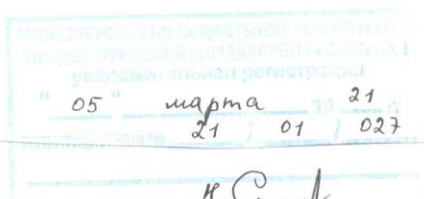 МИНИСТЕРСТВО ПО СОЦИАЛЬНОЙ
ПРИДНЕСТРОВСКОЙ МОЛДАВСКОЙ РЕСПУБЛИКИ
уведомительная регистрация
" 05 " марта 20 21 г.
21 / 01 / 027